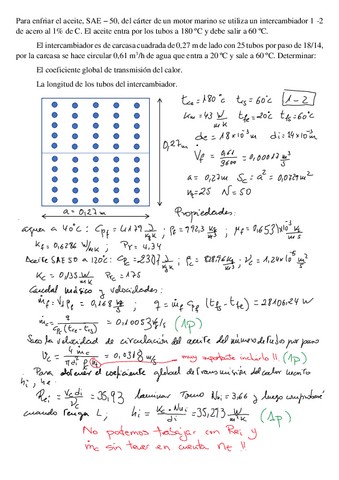 Para enfriar el aceite, SAE – 50, del cárter de un motor marino se utiliza un intercambiador 1 -2
de acero al 1% de C. El aceite entra por los tubos a 180 ºC y debe salir a 60 ºC.
El intercambiador es de carcasa cuadrada de 0,27 m de lado con 25 tubos por paso de 18/14,
por la carcasa se hace circular 0,61 m³/h de agua que entra a 20 ºC y sale a 60 ºC. Determinar:
El coeficiente global de transmisión del calor.
La longitud de los tubos del intercambiador.
tce = 180ºC tcs = 60ºC 1-2
Km = 43 W/mK tfe = 20ºC tfs = 60ºC
de = 18x10⁻³m di = 14x10⁻³m
0,27m
V̇f = 0,61/3600 = 0,00017 m³/s
a = 0,27m Sc = a² = 0,0729m²
nt = 25 N = 50
a = 0,27m
Propiedades:
agua a 40ºC: Cpf = 4179 J/kgK ; ρf = 992,3 kg/m³ ; μf =
Kf = 0,6286 W/mK ; Pr = 4,34
Aceite SAE 50 a 120ºC:
Kc = 0,135 W/mK Prc = 175
Caudal másico y velocidades:
ṁf = V̇f ρf = 0,168 kg/s ; q = ṁf cpf (tfs - tfe) = 28106,24 W
ṁc = q/cpc(tce-tcs) = 0,1005 kg/s (1p)
Saco la velocidad de circulación del aceite del número de tubos por paso
muy importante incluirlo !! (1p)
Para obtener el coeficiente global de transmisión del calor necesito
hi, he
Rei = vc di/νc = 35,93 laminar Tomo Nui = 3,66 y luego compruebo
cuando tenga L; hi = Kc·Nui/di = 35,273 W/m²K (1p)
No podemos trabajar con Rei y
ṁc sin tener en cuenta nt !!